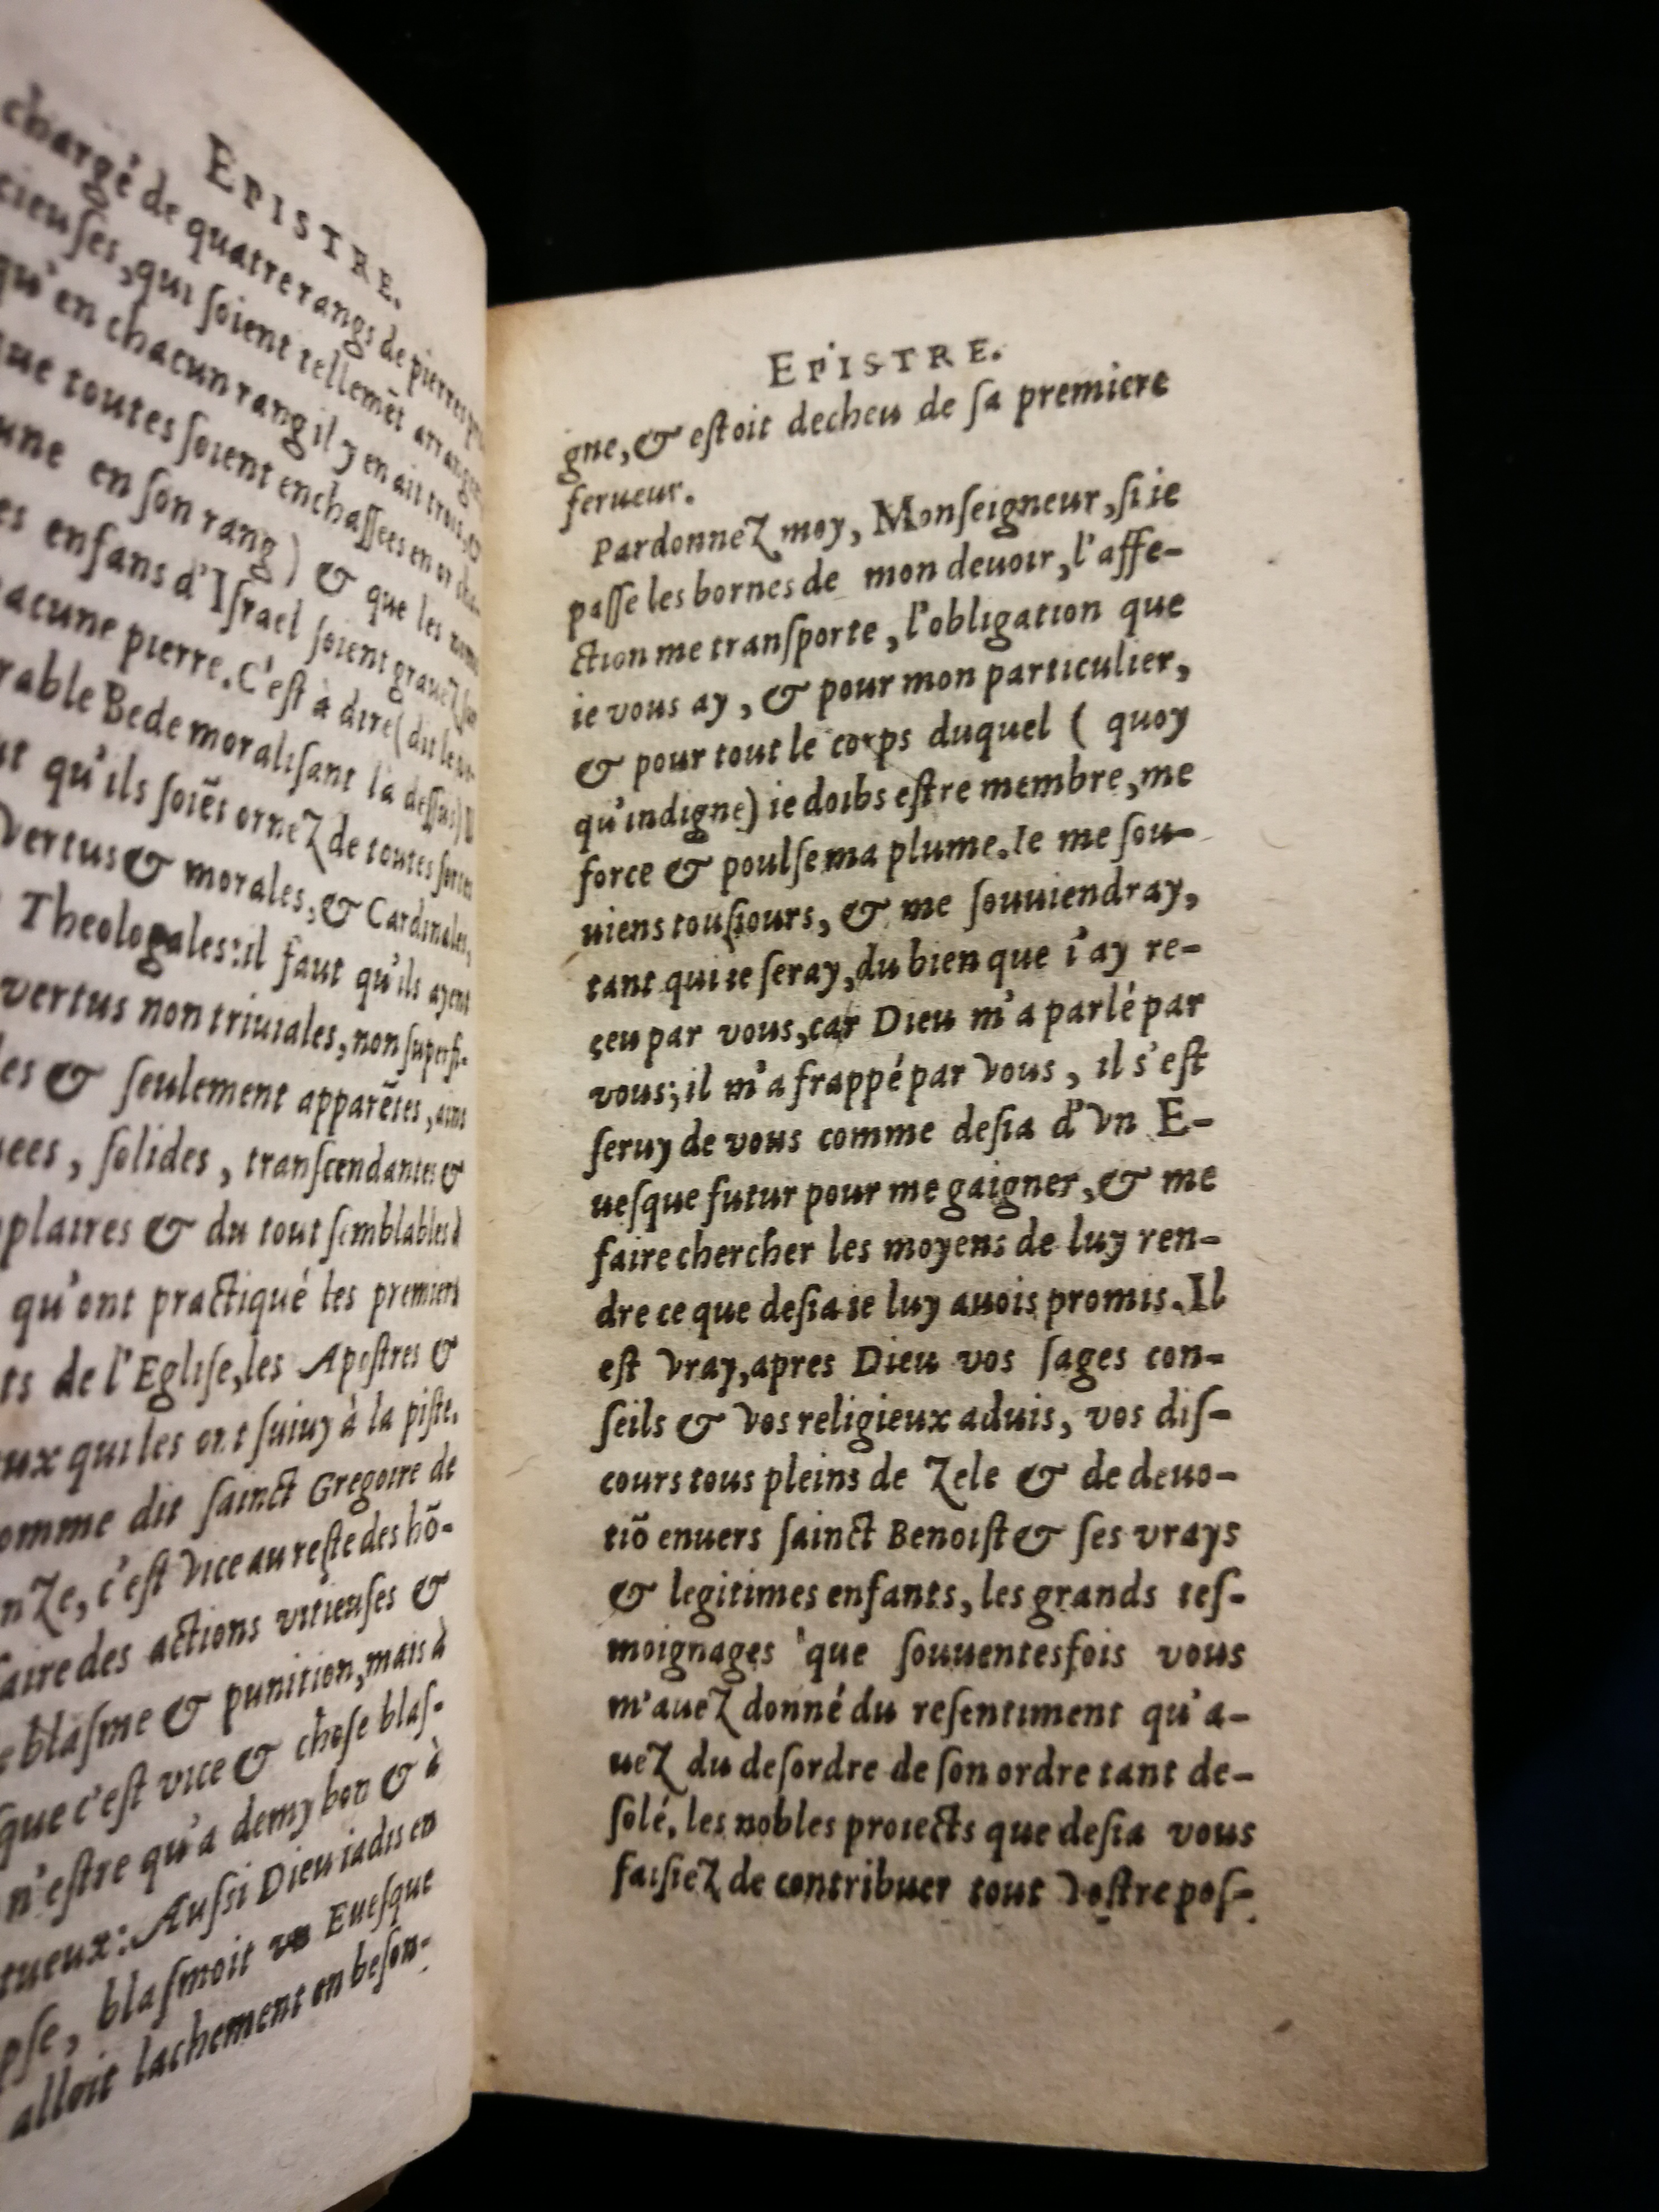 EPISTRE.
chargé de quatre rangs de pierres
cieuſes, qui ſoient tellemēt arrangees
qu'en chacun rang il y en ait trois, &
que toutes ſoient enchaſſees en or cha-
une en ſon rang) & que les noms
es enfans d'Iſrael ſoient grauez ſur
acune pierre. C'eſt à dire (dit le
rable Bede moraliſant là deſſus)
qu'ils ſoiēt ornez de toutes ſortes
vertus & morales, & Cardinales,
Theologales: il faut qu'ils ayent
vertus non triuiales, non ſuperfi-
les & ſeulement apparētes, ains
ees, ſolides, tranſcendantes &
plaires & du tout ſemblables à
qu'ont practiqué les premiers
ts de l'Egliſe, les Apoſtres &
ux qui les ont ſuiuy à la piſte.
omme dit ſainct Gregoire de
nze, c'eſt vice au reſte des hō-
faire des actions vitieuſes &
blaſme & punition, mais à
que c'eſt vice & choſe blaſ-
n'eſtre qu'a demy bon & à
tueux: Auſſi Dieu iadis en
pſe, blaſmoit vn Eueſque
alloit lachement en beſon-
EPISTRE.
gne, & eſtoit decheu de ſa premiere
ferueur.
Pardonnez moy, Monſeigneur, ſi ie
paſſe les bornes de mon deuoir, l'affe-
ction me tranſporte, l'obligation que
ie vous ay, & pour mon particulier,
& pour tout le corps duquel ( quoy
qu'indigne) ie doibs eſtre membre, me
force & poulſe ma plume. Ie me ſou-
uiens touſiours, & me ſouuiendray,
tant qui ie ſeray, du bien que i'ay re-
çeu par vous, car Dieu m'a parlé par
vous; il m'a frappé par vous, il s'eſt
ſeruy de vous comme deſia d'vn E-
ueſque futur pour me gaigner, & me
faire chercher les moyens de luy ren-
dre ce que deſia ie luy auois promis. Il
eſt vray, apres Dieu vos ſages con-
ſeils & vos religieux aduis, vos diſ-
cours tous pleins de zele & de deuo-
tiō enuers ſainct Benoiſt & ſes vrays
& legitimes enfants, les grands teſ-
moignages que ſouuentesfois vous
m'auez donné du reſentiment qu'a-
uez du deſordre de ſon ordre tant de-
ſolé, les nobles proiects que deſia vous
faiſiez de contribuer tout voſtre poſ-